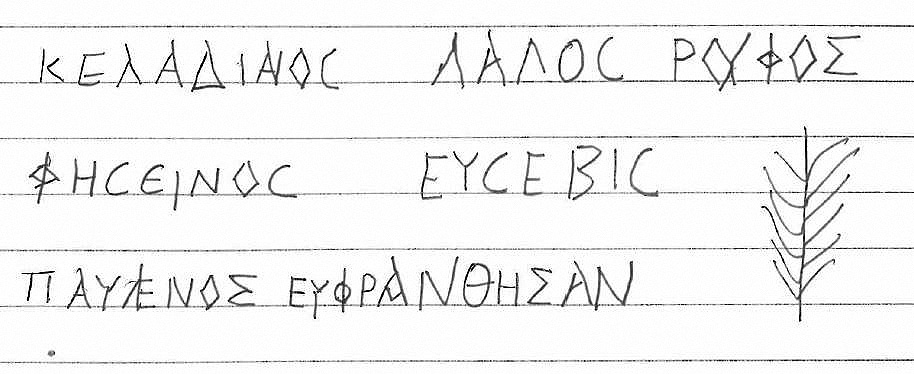 ΚΕΛΑΔΙΑΝΟC ΛΑΛΟC ΡΟΥΦΟΣ
ΦΗCΕΙΝΟC ΕΥCΕΒΙC
ΠΑΥΛΕΝΟΣ ΕΥΦΡΑΝΘΗΣΑΝ